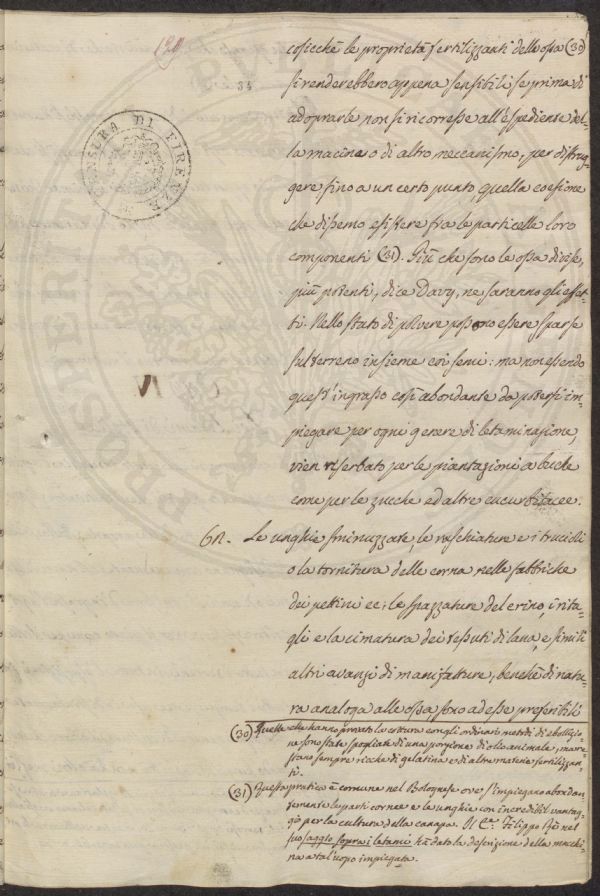 34
CENSURA DI FIRENZE
cosicchè le proprietà fertilizzanti delle ossa (30)
si renderebbero appena sensibili se prima di
adoprarle non si ricorresse all'espediente del-
la macine o di altro meccanismo, per distrug-
gere fino a un certo punto, quella coesione
che dissemo esistere fra le particelle loro
componenti (31). Più che sono le ossa divise,
più potenti, dice Davy, ne saranno gli effet-
ti. Nello stato di polvere possono essere sparse
sul terreno insieme coi semi: ma non essendo
quest'ingrasso così abondante da potersi im-
piegare per ogni genere di letaminazione,
vien riserbato per le piantazioni a buche
come per le zucche ed altre cucurbitacee.
62. Le unghie sminuzzate, le raschiature e i trucioli
o la tornitura delle corna nelle fabbriche
dei pettini ec; le spazzature del crino, i rita-
gli e la cimatura dei tessuti di lana, e simili
altri avanzi di manifatture, benchè di natu-
ra analoga alle ossa, sono ad esse preferibili
(30) Quelle che hanno provato la cottura con gli ordinari metodi di ebollizio-
ne sono state spogliate di una porzione di olio animale, ma re-
stano sempre ricche di gelatina e di altre materie fertilizzan-
ti.
(31) Questa pratica è comune nel Bolognese ove s'impiegano abondan-
temente le parti cornee e le unghie con incredibil vantag-
gio per la cultura della canapa. Il Filippo Re nel
suo saggio sopra i letami ha dato la descrizione della macchi-
na a tal'uopo impiegata.